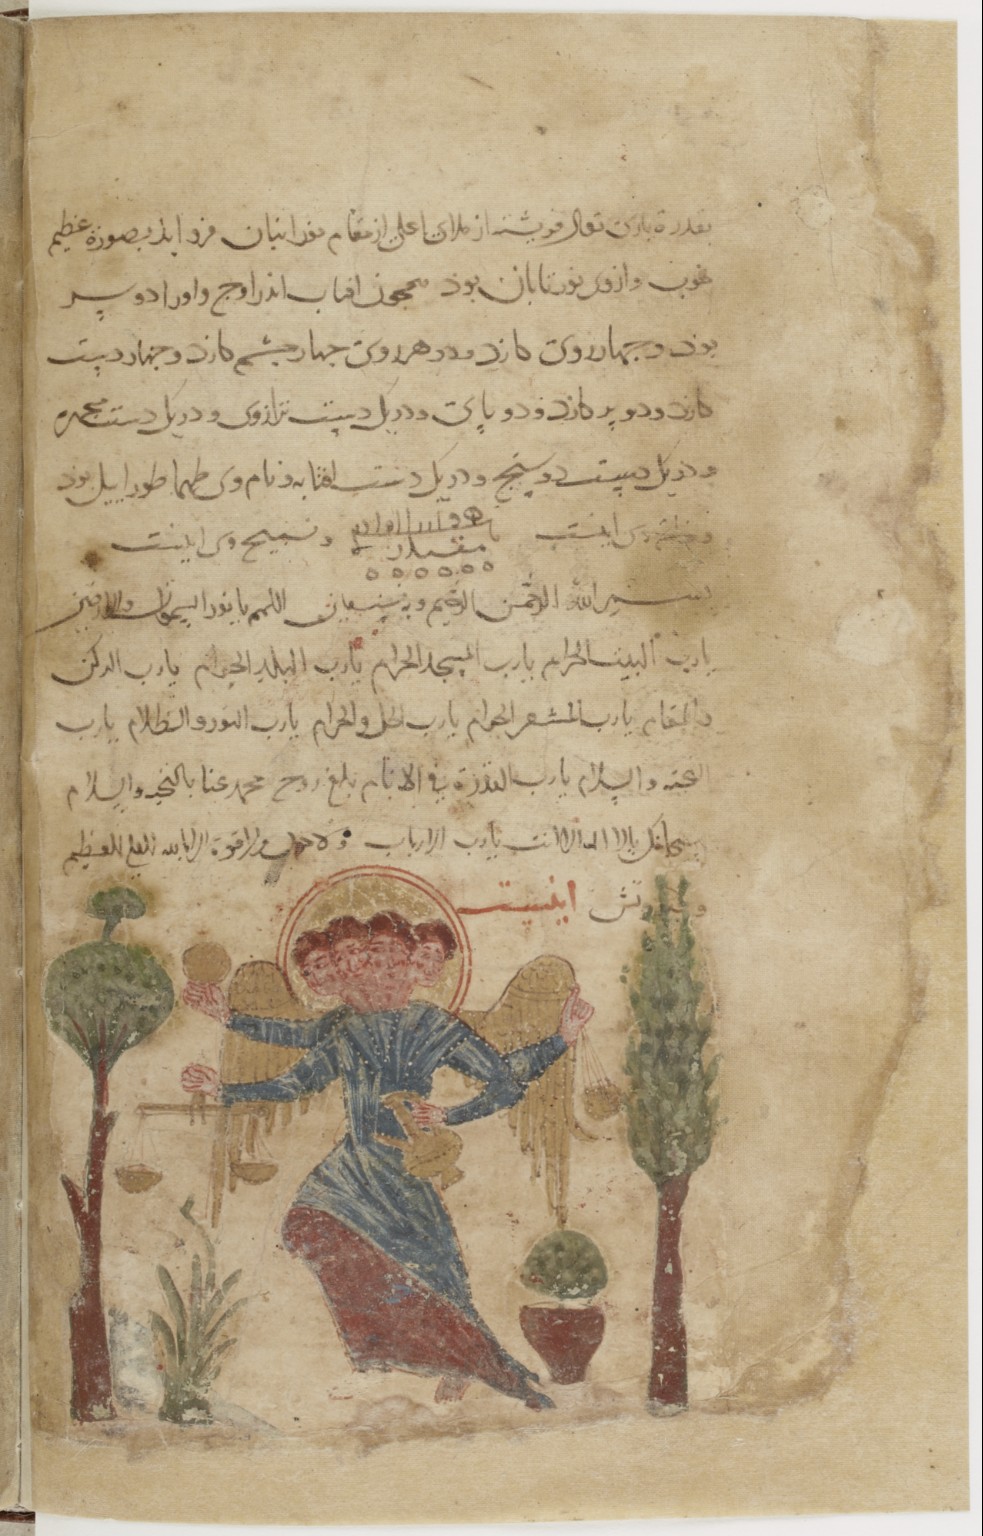 بقدرة باری تعالی فریشته از ملای اعلی از مقام نورانیان فروایذ بصورة عظیم
خوب و از وی نور تابان بوذ همجون افتاب اندر اوج و اورا دو سر
بوذ و جهار روی دارد و در هر روی جهار جشم دارد و جهار دست
دارد و دو پر دارد و دو پای و در یک دست ترازوی و در یک دست مجمره
و در یک دست دو سنج و در یک دست افتابه و نام وی طهماطوراییل بوذ
وی اینست و تسبیح وی اینست
بسم الله الرحمن الرحیم اللهم یا نور السموات والارضین
یا رب البیت الحرام یا رب المسجد الحرام یا رب البلد الحرام یا رب الرکن
والمقام یا رب المشعر الحرام یا رب الحل والحرام یا رب النور والظلام یا رب
التحیة والسلام یا رب القدرة فی الانام بلغ روح محمد عنا بالتحیة والسلام
سبحانک یا لا اله الا انت یا رب الارباب ولا حول ولا قوة الا بالله العلی العظیم
و صورتش اینست